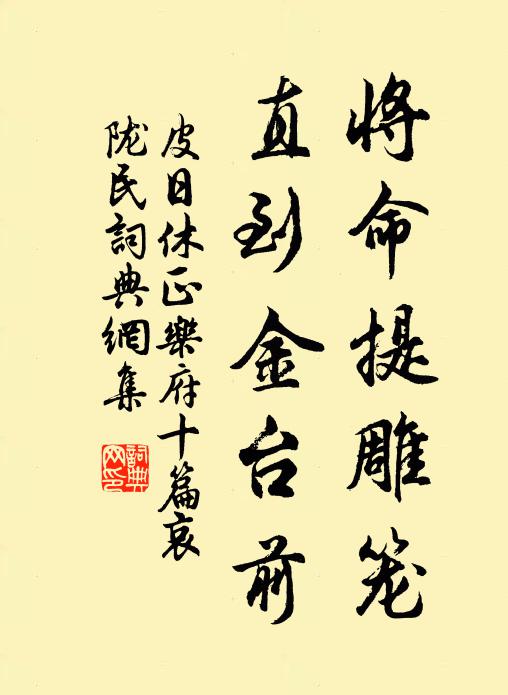 将命提雕笼
直到金台前
皮日休正樂府十篇哀
陇民詞典網集
詞典
网印